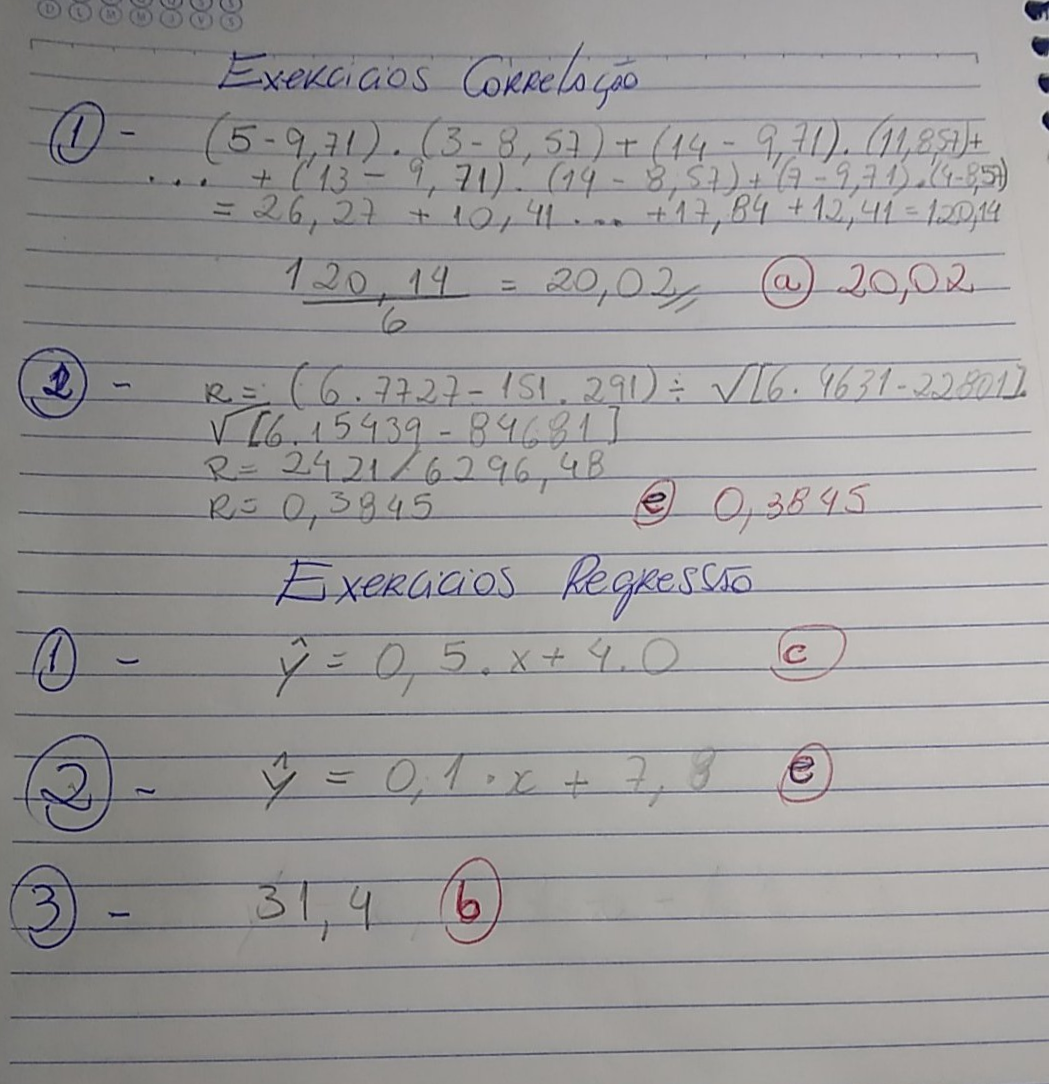 Exercícios Correlação
1 - (5-9,71).(3-8,57)+(14-9,71).(11,8,57)+
... +(13-9,71).(14-8,57)+(7-9,71).(4-8,57)
=26,27 +10,41... +17,84+12,41=120,14
120,14 = 20,02 a 20,02
6
2 - R=(6.7727-151.291)÷√[6.4631-22801].
√[6.15439-84681]
R=2421/6296,48
R=0,3845 e 0,3845
Exercícios Regressão
1 - ŷ=0,5.x+4.0 c
2 - ŷ=0,1.x+7,8 e
3 - 31,4 b